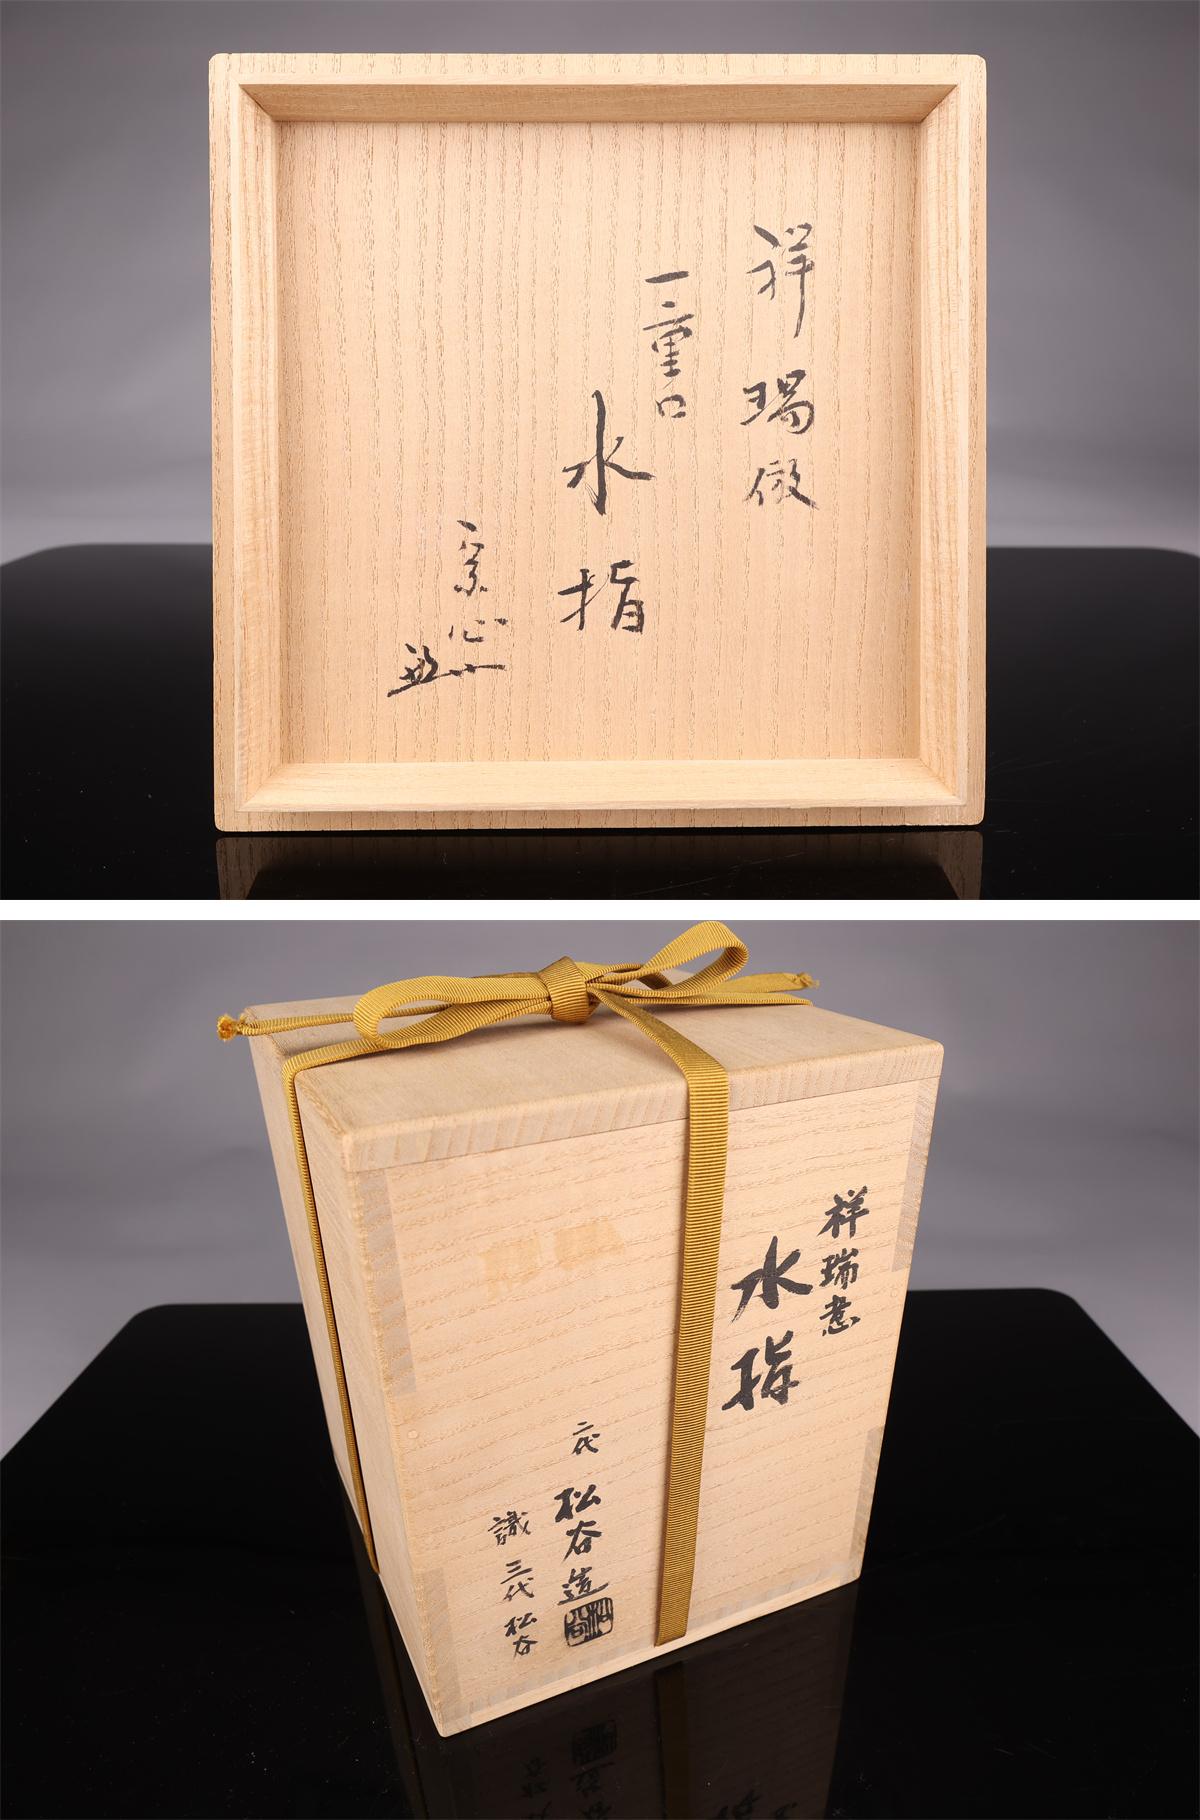 祥瑞倣
一重口
水指
祥瑞意
水指
二代 松谷造
識 三代 松谷